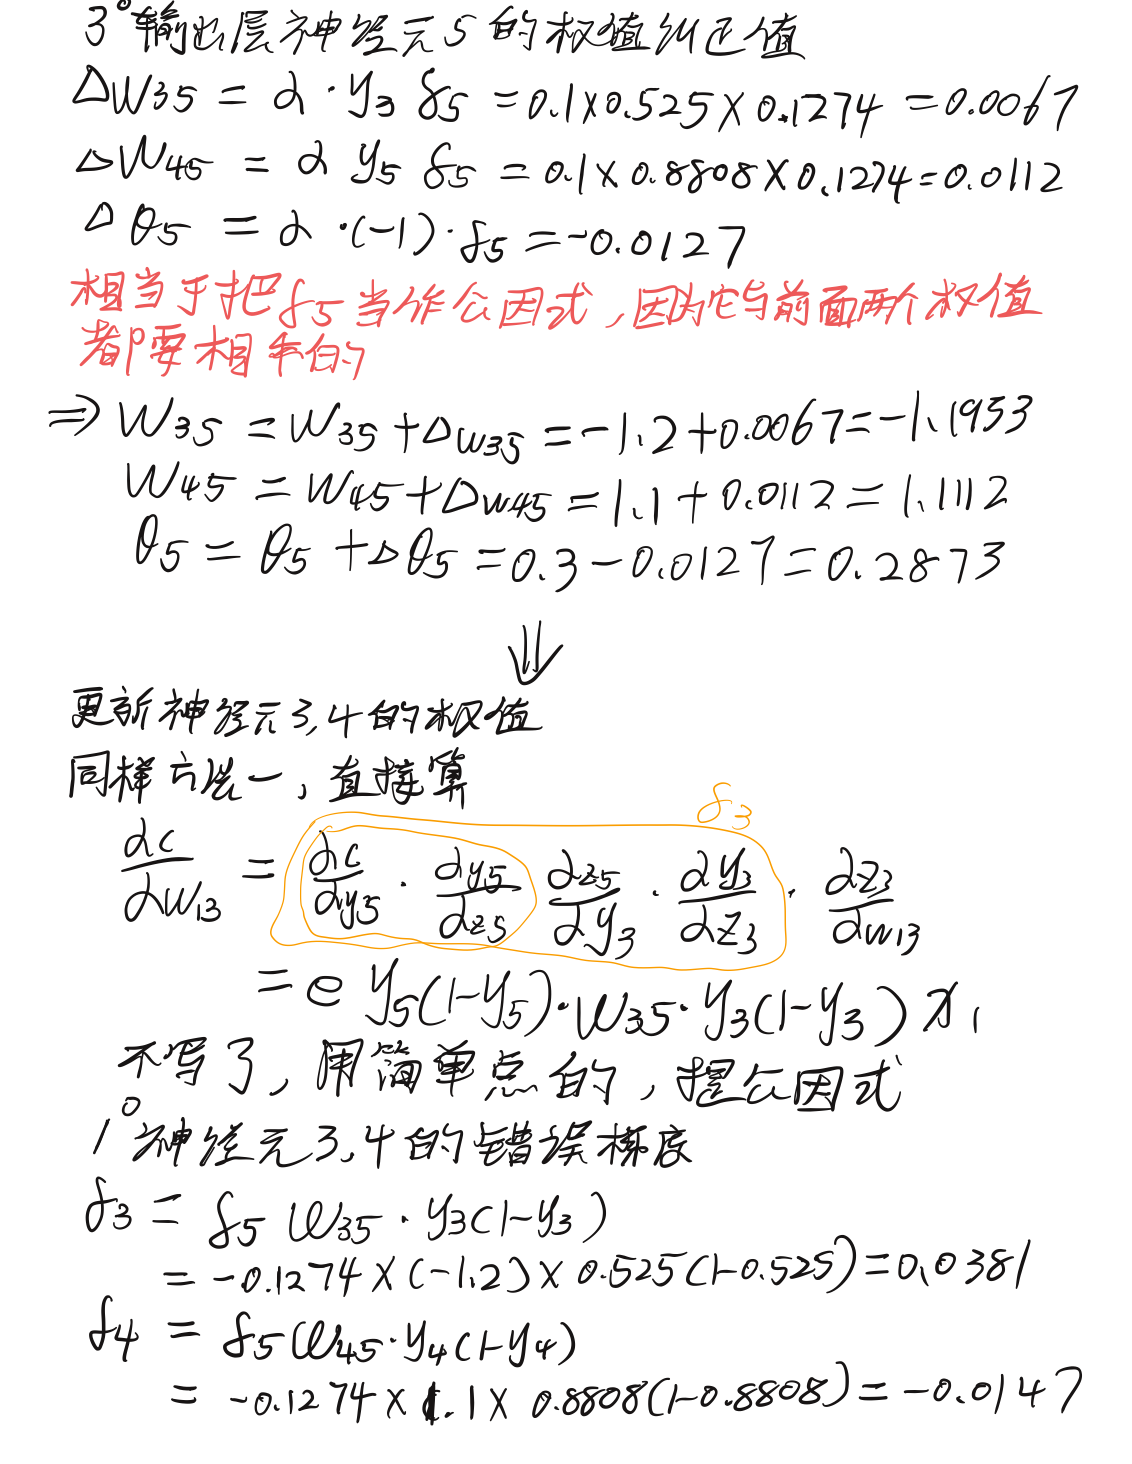 3° 输出层神经元5的权值纠正值
△W35 = α · y3 δ5 = 0.1×0.525×0.1274 = 0.0067
△W45 = α y5 δ5 = 0.1×0.8808×0.1274 = 0.0112
△θ5 = α ·(-1)· δ5 = -0.0127
相当于把δ5当作公因式，因为它与前面两个权值
都要相乘的
⇒ W35 = W35 + △W35 = -1.2+0.0067 = -1.1933
W45 = W45 + △W45 = 1.1 + 0.0112 = 1.1112
θ5 = θ5 + △θ5 = 0.3 - 0.0127 = 0.2873
⇓
更新神经元3,4的权值
同样方法一，直接算
δ3
∂c/∂W13 = ∂c/∂y5 · ∂y5/∂z5 ∂z5/∂y3 · ∂y3/∂z3 · ∂z3/∂w13
= e y5(1-y5)·W35·y3(1-y3) x1
不写了，用简单点的，提公因式
1° 神经元3,4的错误梯度
δ3 = δ5 W35 · y3(1-y3)
= -0.1274×(-1.2)×0.525(1-0.525) = 0.0381
δ4 = δ5 W45·y4(1-y4)
= -0.1274×1.1×0.8808(1-0.8808) = -0.0147